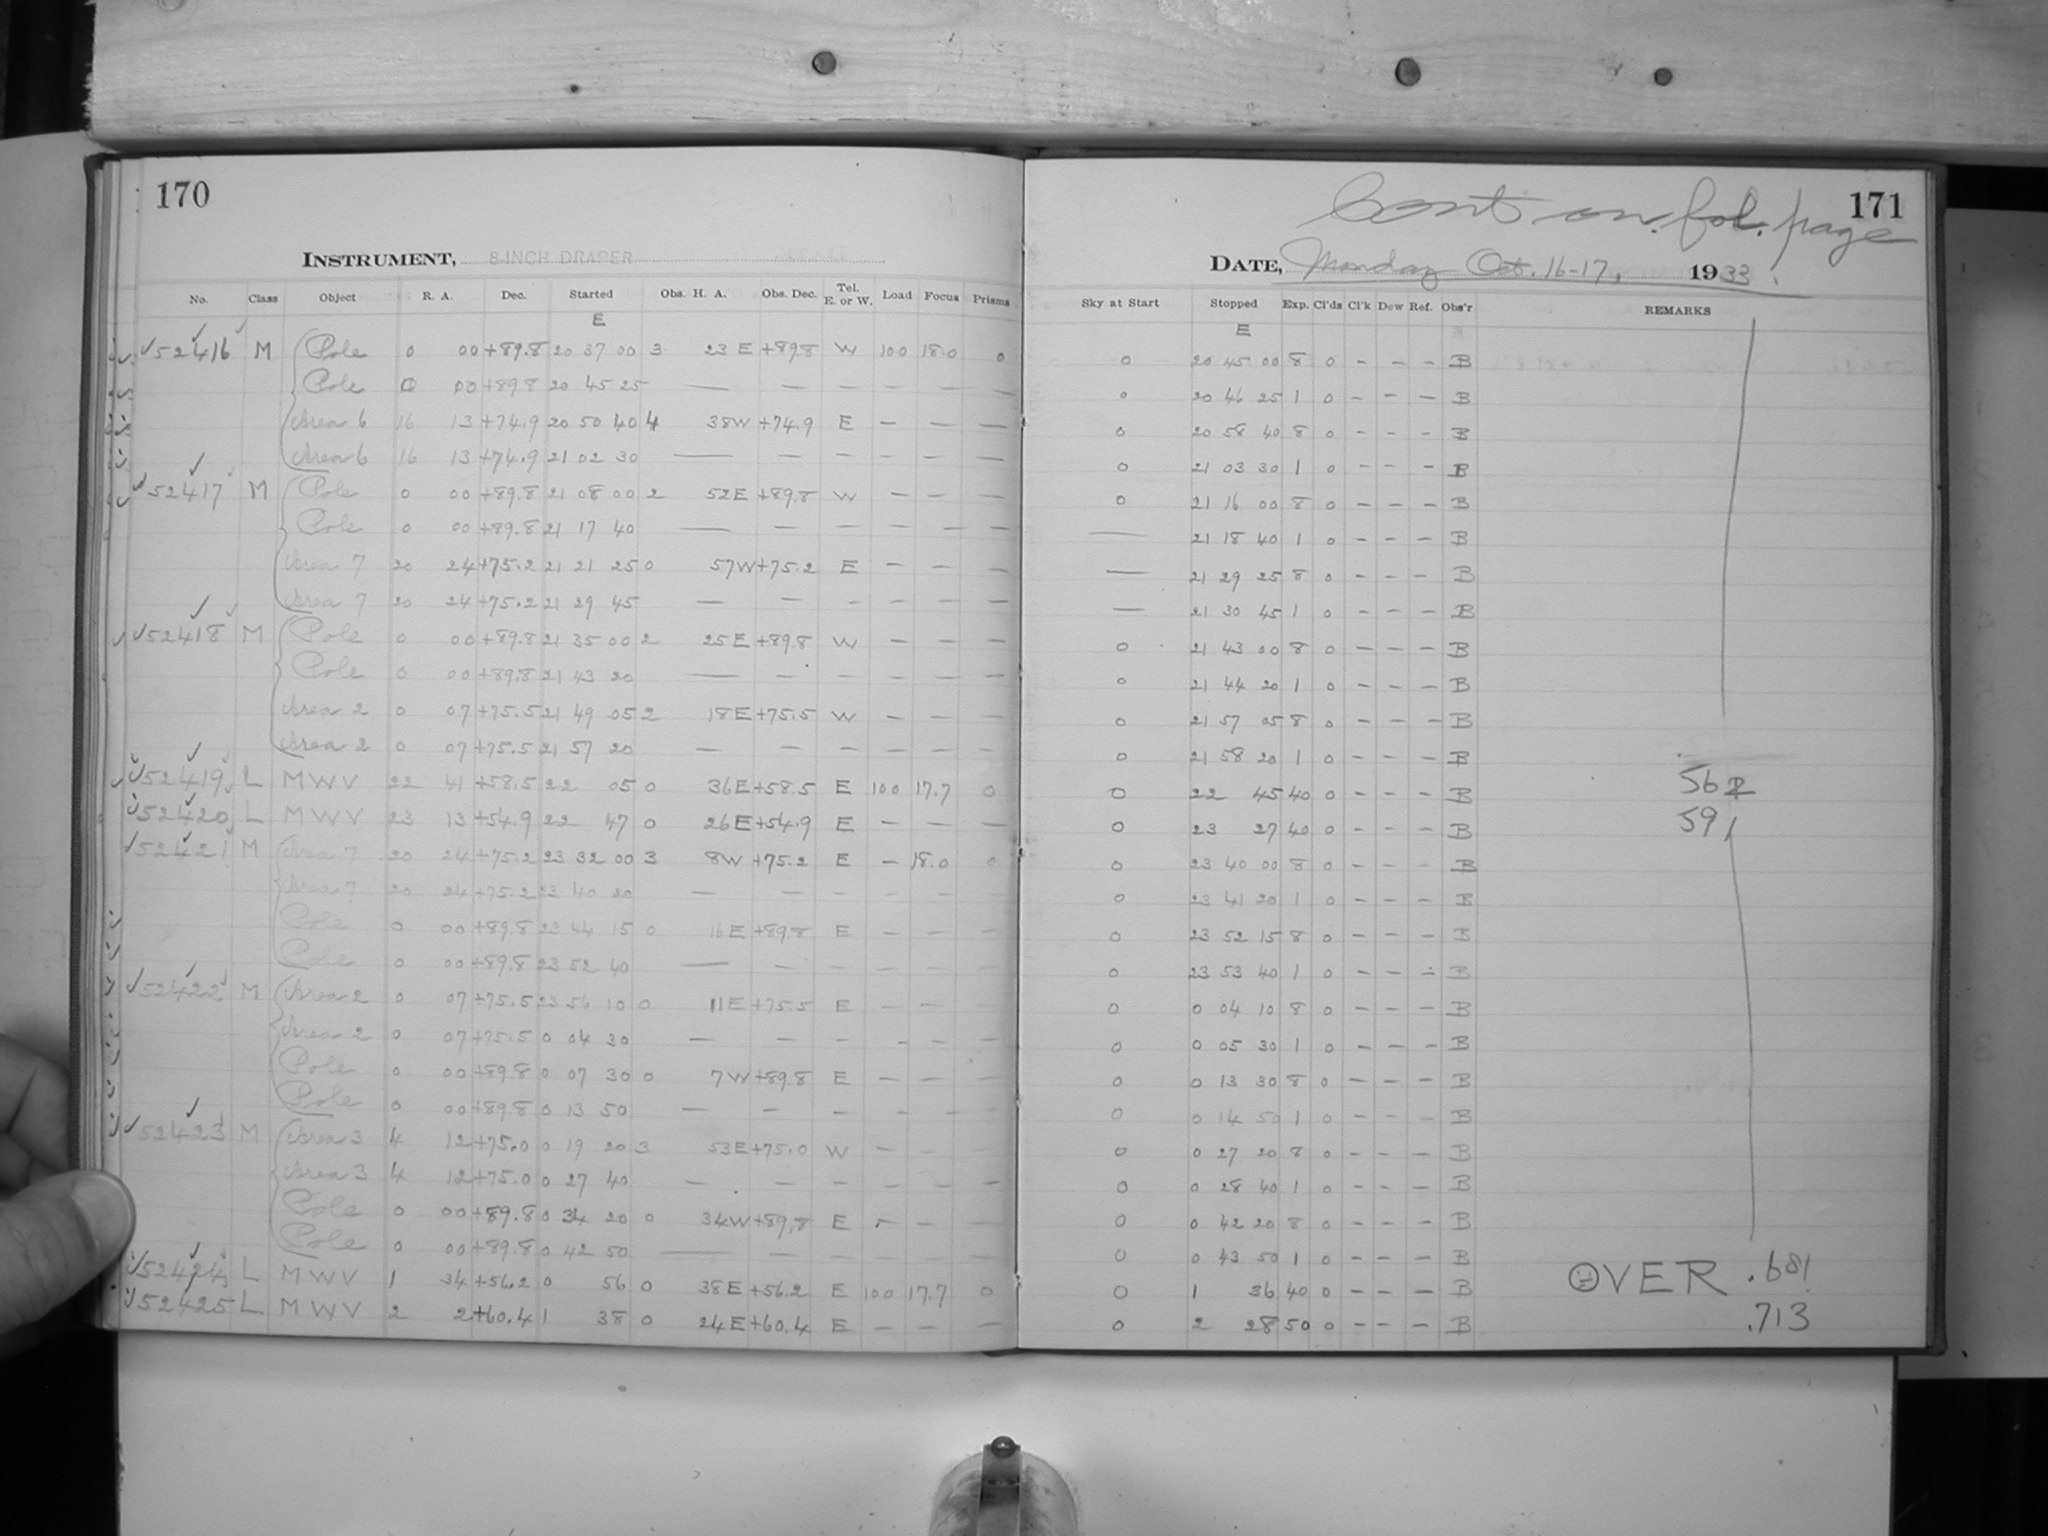 170
INSTRUMENT, 8-INCH DRAPER
No. Class Object R. A. Dec. Started Obs. H. A. Obs. Dec. Tel. E. or W. Load Focus Prisms
E
52416 M Pole 0 00 +89.8 20 37 00 3 23 E +89.8 W 100 18.0 0
Pole 0 00 +89.8 20 45 25 — — — — — —
Area 6 16 13 +74.9 20 50 40 4 38W +74.9 E — — —
Area 6 16 13 +74.9 21 02 30 — — — — — —
52417 M Pole 0 00 +89.8 21 08 00 2 52E +89.8 W — — —
Pole 0 00 +89.8 21 17 40 — — — — — —
Area 7 20 24 +75.2 21 21 25 0 57W +75.2 E — — —
Area 7 20 24 +75.2 21 29 45 — — — — — —
52418 M Pole 0 00 +89.8 21 35 00 2 25E +89.8 W — — —
Pole 0 00 +89.8 21 43 20 — — — — — —
Area 2 0 07 +75.5 21 49 05 2 18E +75.5 W — — —
Area 2 0 07 +75.5 21 57 20 — — — — — —
52419 L MWV 22 41 +58.5 22 05 0 36E +58.5 E 100 17.7 0
52420 L MWV 23 13 +54.9 22 47 0 26E +54.9 E — — —
52421 M Area 7 20 24 +75.2 23 32 00 3 8W +75.2 E — 18.0 0
Area 7 20 24 +75.2 23 40 20 — — — — — —
Pole 0 00 +89.8 23 44 15 0 16E +89.8 E — — —
Pole 0 00 +89.8 23 52 40 — — — — — —
52422 M Area 2 0 07 +75.5 23 56 10 0 11E +75.5 E — — —
Area 2 0 07 +75.5 0 04 30 — — — — — —
Pole 0 00 +89.8 0 07 30 0 7W +89.8 E — — —
Pole 0 00 +89.8 0 13 50 — — — — — —
52423 M Area 3 4 12 +75.0 0 19 20 3 53E +75.0 W — — —
Area 3 4 12 +75.0 0 27 40 — — — — — —
Pole 0 00 +89.8 0 34 20 0 34W +89.8 E — — —
Pole 0 00 +89.8 0 42 50 — — — — — —
52424 L MWV 1 34 +56.2 0 56 0 38E +56.2 E 100 17.7 0
52425 L MWV 2 2 +60.4 1 38 0 24E +60.4 E — — —
Cont on. fol. page 171
DATE, Monday Oct. 16-17, 1933.
Sky at Start Stopped Exp. Cl'ds Cl'k Dew Ref. Obs'r REMARKS
E
0 20 45 00 8 0 — — — B
0 20 46 25 1 0 — — — B
0 20 58 40 8 0 — — — B
0 21 03 30 1 0 — — — B
0 21 16 00 8 0 — — — B
— 21 18 40 1 0 — — — B
— 21 29 25 8 0 — — — B
— 21 30 45 1 0 — — — B
0 21 43 00 8 0 — — — B
0 21 44 20 1 0 — — — B
0 21 57 05 8 0 — — — B
0 21 58 20 1 0 — — — B
0 22 45 40 0 — — — B 562
0 23 27 40 0 — — — B 591
0 23 40 00 8 0 — — — B
0 23 41 20 1 0 — — — B
0 23 52 15 8 0 — — — B
0 23 53 40 1 0 — — — B
0 0 04 10 8 0 — — — B
0 0 05 30 1 0 — — — B
0 0 13 30 8 0 — — — B
0 0 14 50 1 0 — — — B
0 0 27 20 8 0 — — — B
0 0 28 40 1 0 — — — B
0 0 42 20 8 0 — — — B
0 0 43 50 1 0 — — — B
0 1 36 40 0 — — — B OVER .681
0 2 28 50 0 — — — B .713